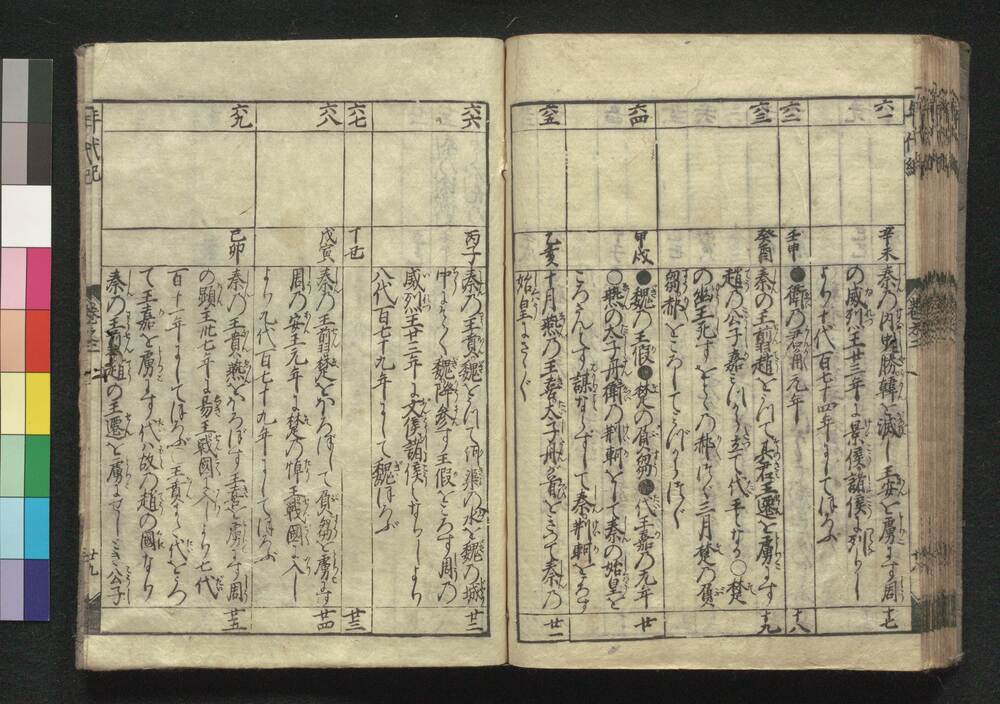 六一
辛未
秦の内史勝韓を滅し王安を虜にす周
の威烈王廿三年に景侯諸侯に列りし
より十代百七十四年にしてほろぶ
十七
六二
壬申
●衛の君角元年
十八
六三
癸酉
秦の王翦趙をうつて其君王遷を虜にす
趙の公子嘉にげはしり立て代王となる○楚
の幽王死すをとゝの郝つぐ三月楚の負
芻郝をころしてみづからつぐ
十九
六四
甲戌
●魏の王假●楚の負芻●代王嘉の元年
○燕の太子丹衛の荊軻をして秦の始皇を
ころさんとす謀ならずして秦荊軻をころす
廿
六五
乙亥
十月燕の王喜太子丹が首をきつて秦の
始皇にさゝぐ
廿一
六六
丙子
秦の王賁魏をうつて河溝の水を魏の城
中にそゝく魏降参す王假をころす周の
威烈王廿三年に文侯諸侯となりしより
八代百七十九年にして魏ほろぶ
廿二
六七
丁丑
廿三
六八
戊寅
秦の王翦楚をほろぼして負芻を虜にす
周の安王元年に楚の悼王戰國に入し
より九代百七十九年にしてほろぶ
廿四
六九
己卯
秦の王賁燕をほろぼす王喜を虜にす周
の顕王卅七年に易王戰國に入しより七代
百十一年にしてほろぶ 王賁また代をうつ
て王嘉を虜にす代ハ故の趙の國なり
秦の王翦趙の王遷を虜にせしとき公子
廿五
年代記
巻之二
廿九